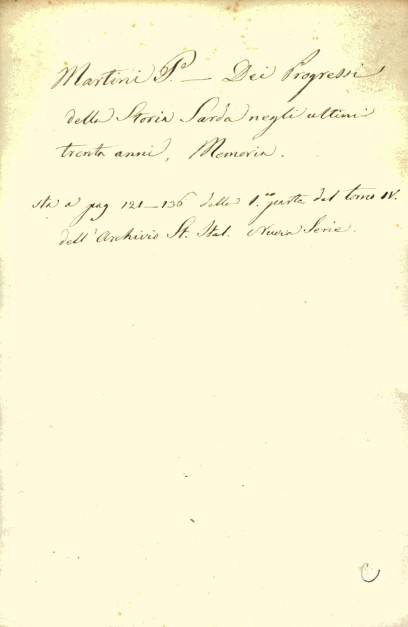 Martini P.e — Dei Progressi
della Storia Sarda negli ultimi
trenta anni, Memoria.
sta a pag 121—136 della 1.ma parte del tomo IV.
dell'Archivio St. Ital. Nuova Serie.
C